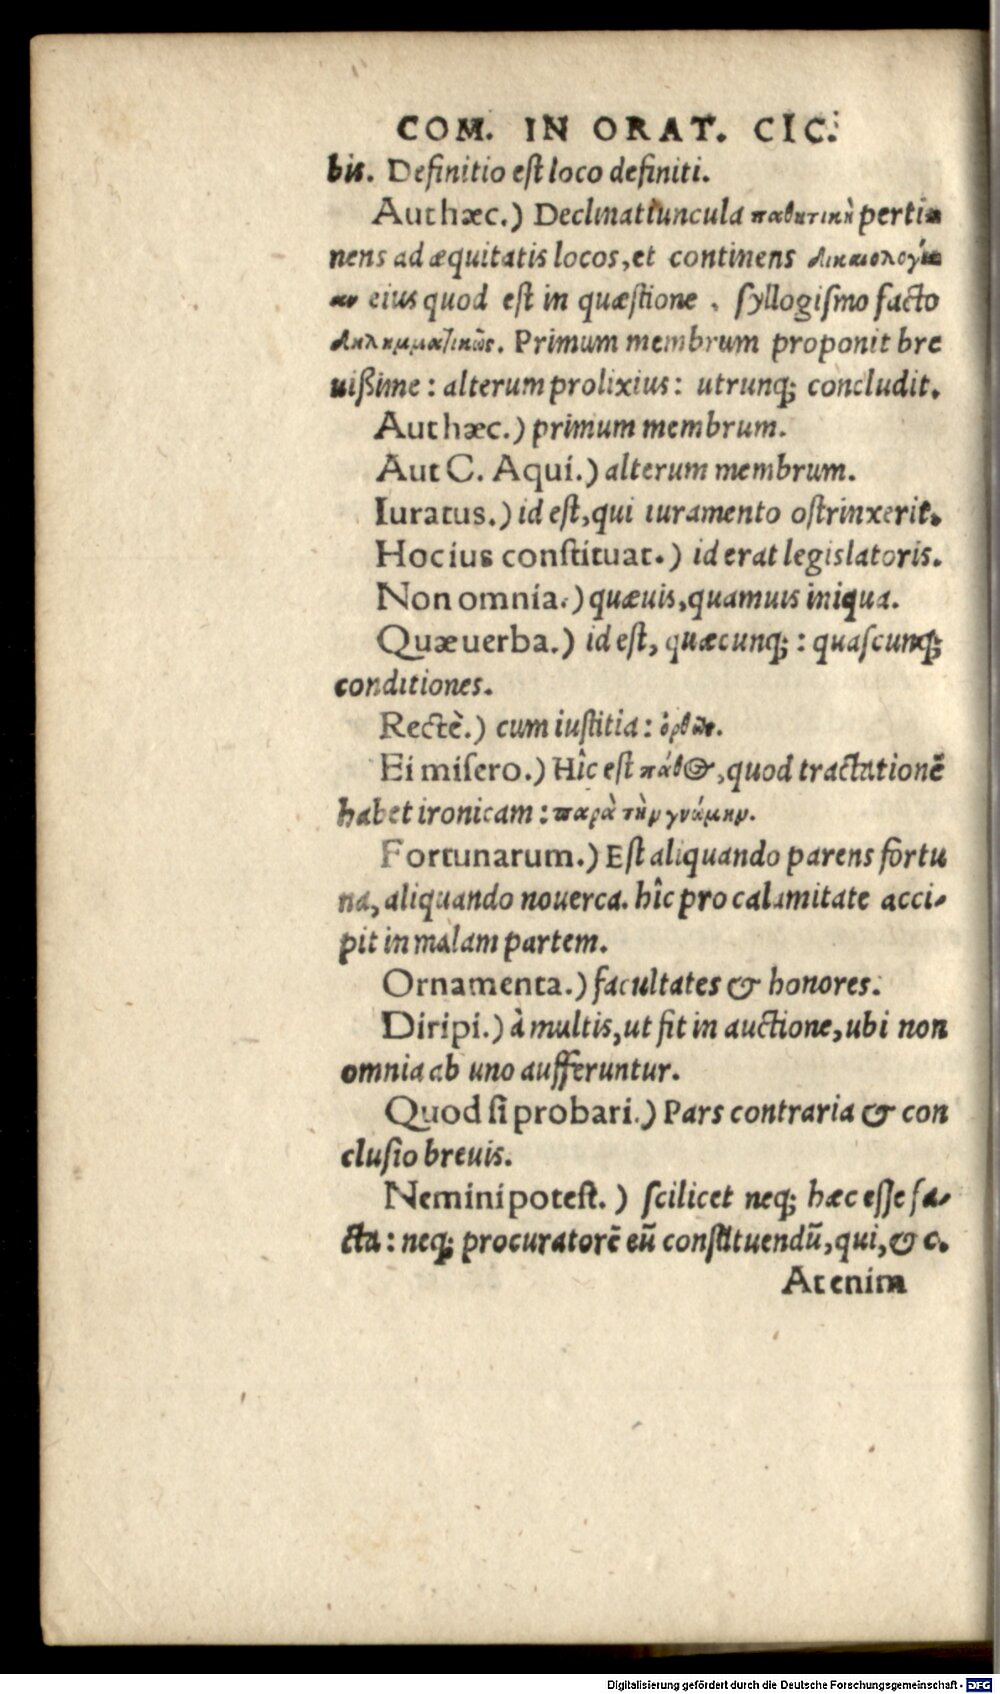 COM. IN ORAT. CIC.
bis. Definitio est loco definiti.
Aut hæc.) Declinatiuncula παθητικὴ perti-
nens ad æquitatis locos, et continens δικαιολογί-
αν eius quod est in quæstione, syllogismo facto
διλημματικῶς. Primum membrum proponit bre
uißime: alterum prolixius: utrunq; concludit.
Aut hæc.) primum membrum.
Aut C. Aqui.) alterum membrum.
Iuratus.) id est, qui iuramento ostrinxerit.
Hoc ius constituat.) id erat legislatoris.
Non omnia.) quæuis, quamuis iniqua.
Quæ uerba.) id est, quæcunq;: quascunq;
conditiones.
Rectè.) cum iustitia: ὀρθῶς.
Ei misero.) Hîc est πάθος, quod tractationẽ
habet ironicam: παρὰ τὴν γνώμην.
Fortunarum.) Est aliquando parens fortu
na, aliquando nouerca. hîc pro calamitate acci-
pit in malam partem.
Ornamenta.) facultates & honores.
Diripi.) à multis, ut fit in auctione, ubi non
omnia ab uno aufferuntur.
Quod si probari.) Pars contraria & con
clusio breuis.
Nemini potest.) scilicet neq; hæc esse fa-
cta: neq; procuratorẽ eũ constituendũ, qui, & c.
At enim
Digitalisierung gefördert durch die Deutsche Forschungsgemeinschaft - DFG